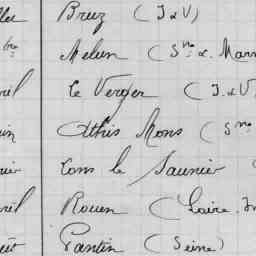 Bruz (I & V)
bre Melun (Sne & Marn
Le Verger (I & V
Athis Mons (Sne
Lons le Saunier (
Rouen (Loire. In
Pantin (Seine)